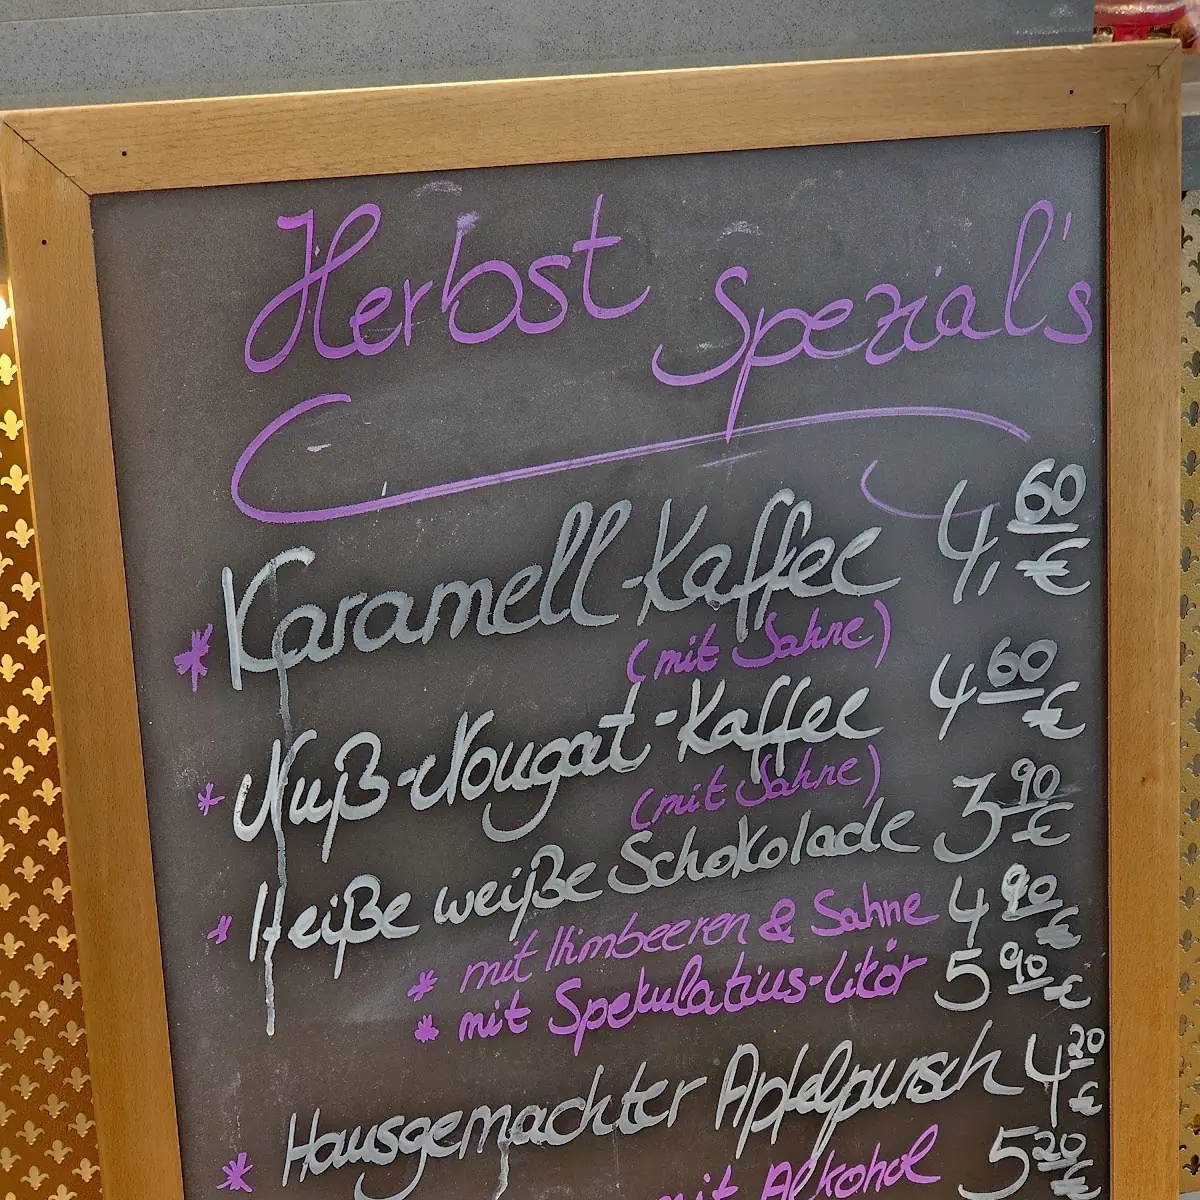 Herbst Spezial's
* Karamell-Kaffee 4,60 €
(mit Sahne)
* Nuß-Nougat-Kaffee 4 60 €
(mit Sahne)
* Heiße weiße Schokolade 3 90 €
* mit Himbeeren & Sahne 4 90 €
* mit Spekulatius-Likör 5 90 €
* Hausgemachter Apfelpunsch 4 20 €
mit Alkohol 5 20 €